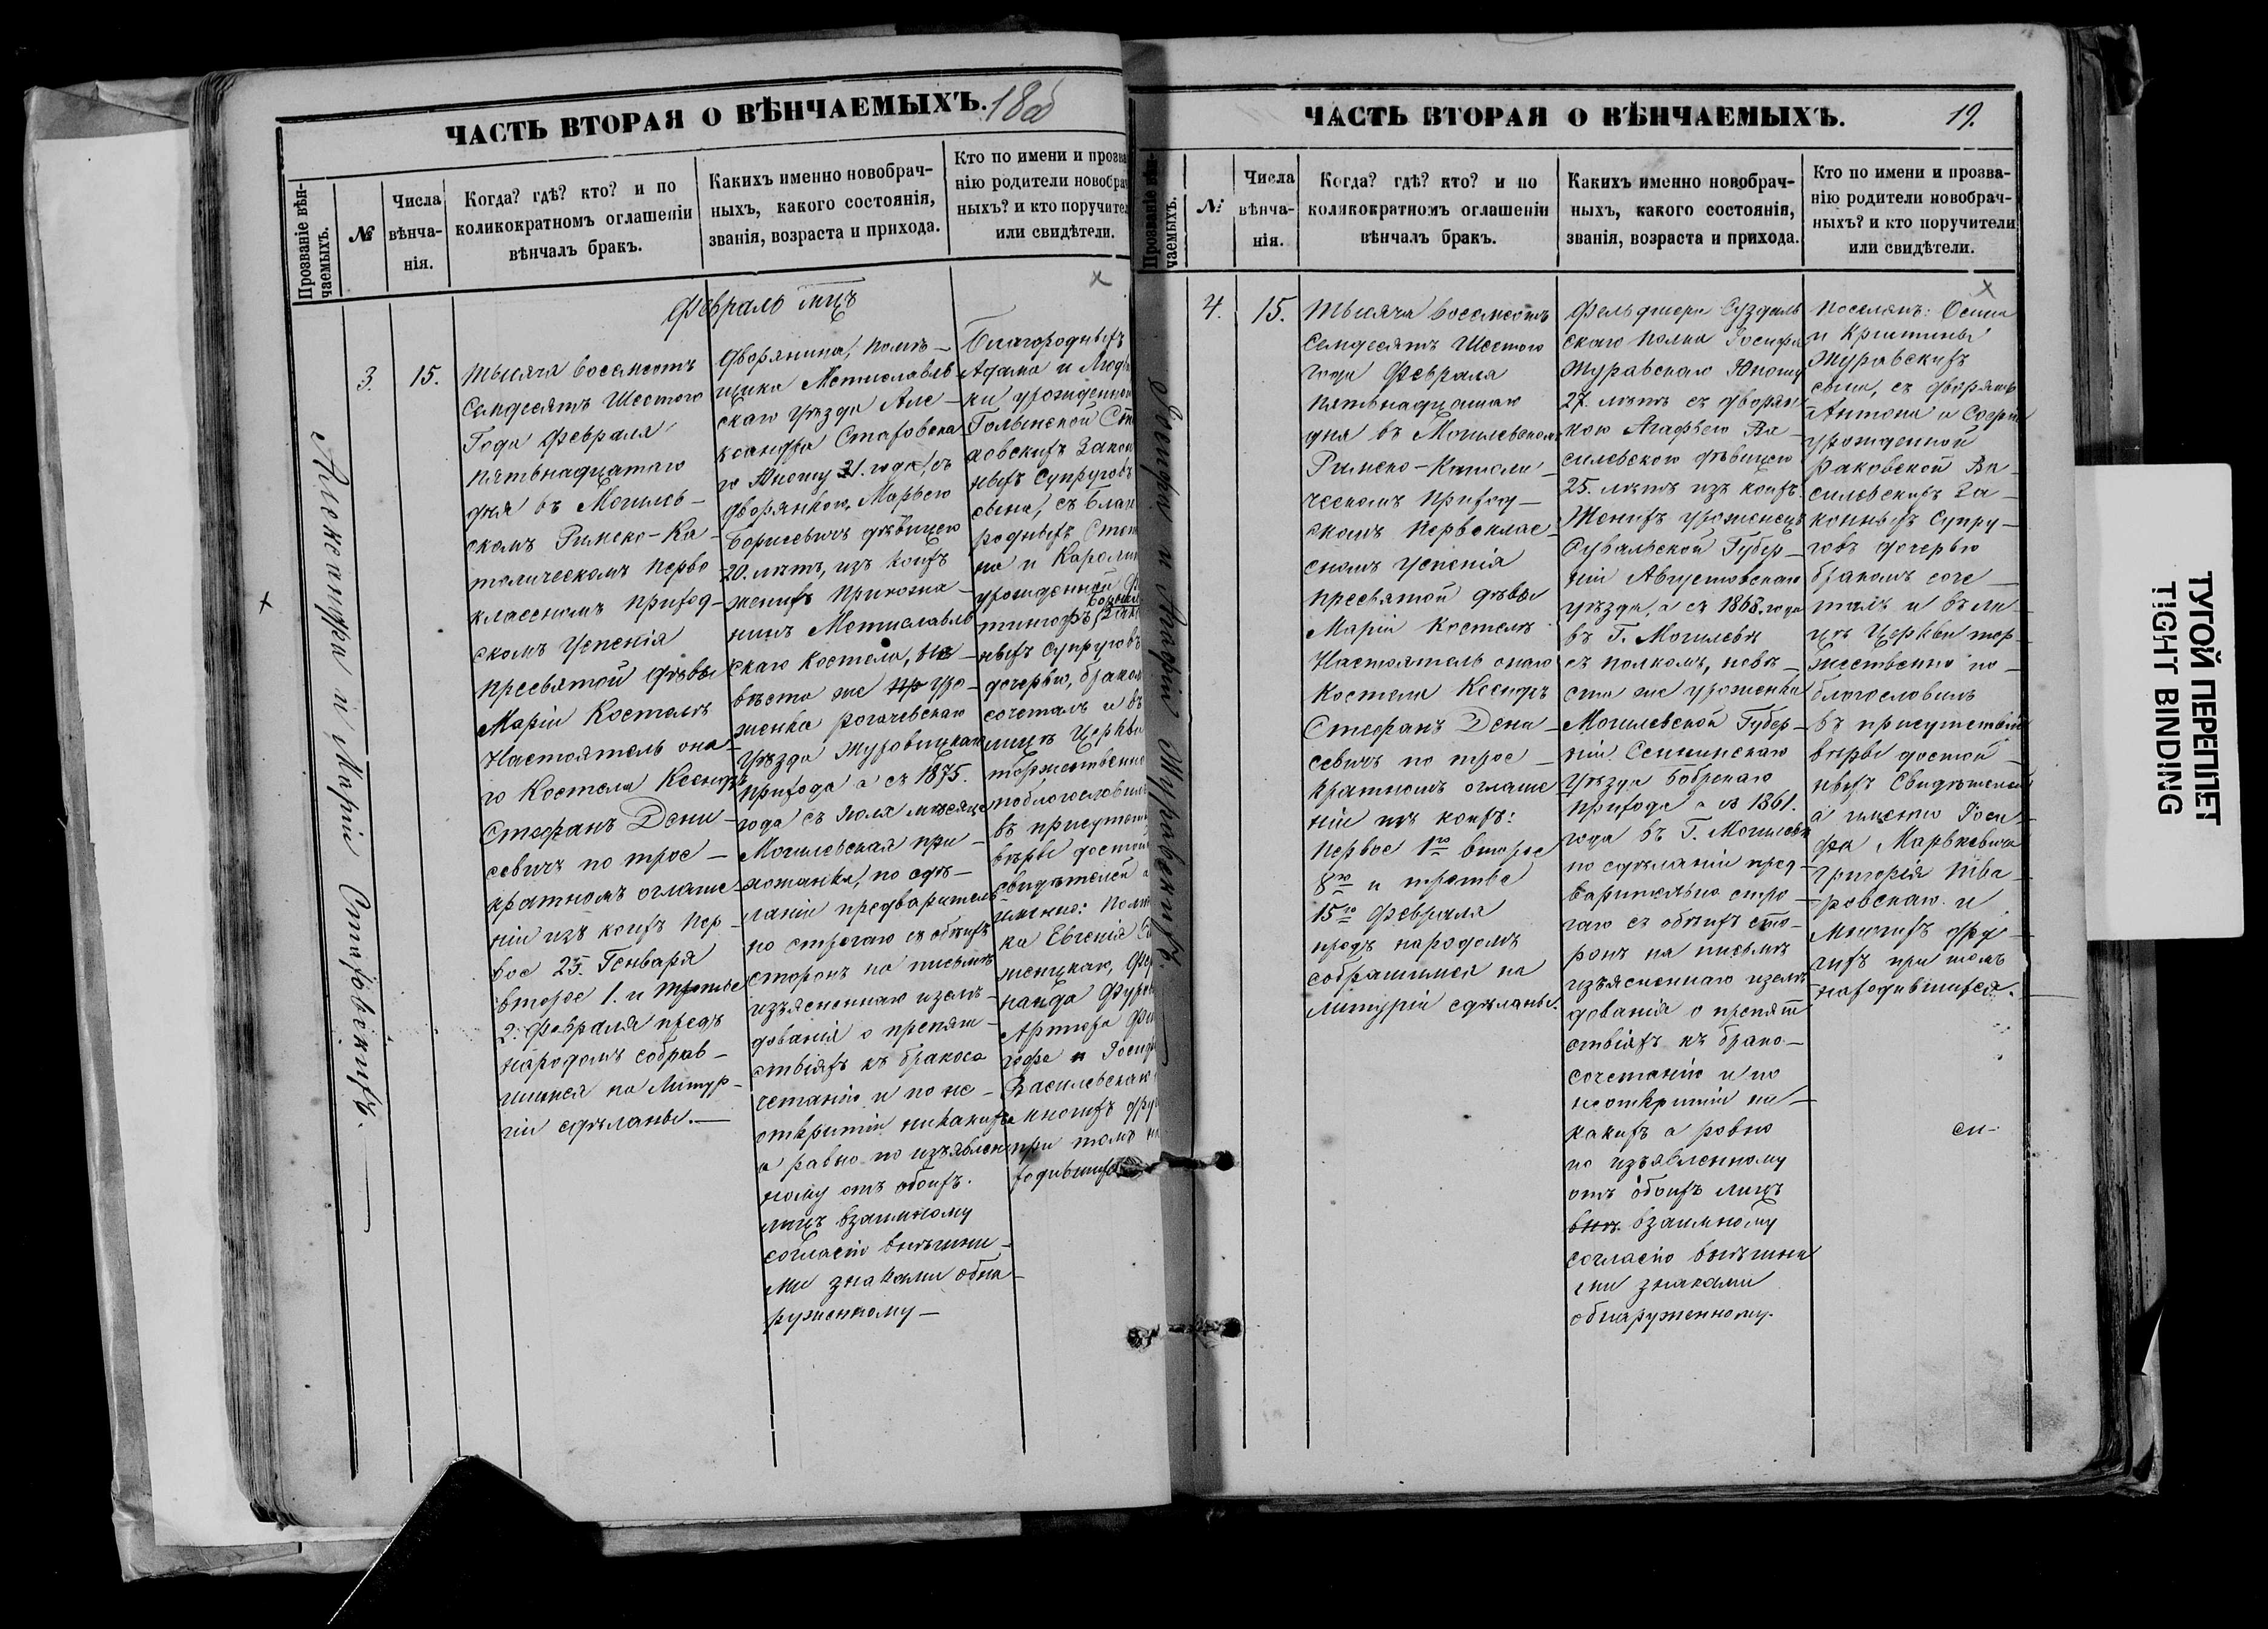 ЧАСТЬ ВТОРАЯ О ВѢНЧАЕМЫХЪ.
18об
Прозваніе вѣн-
чаемыхъ.
№
Числа
вѣнча-
нія.
Когда? гдѣ? кто? и по
коликократномъ оглашеніи
вѣнчалъ бракъ.
Какихъ именно новобрач-
ныхъ, какого состоянія,
званія, возраста и прихода.
Кто по имени и прозва
нію родители новобрач
ныхъ? и кто поручител
или свидѣтели.
Февраль мцъ
Александра и Маріи Стаховскихъ.
3.
15.
Тысяча восемсотъ
Семдесятъ Шестого
Года Февраля
пятьнадцатаго
дня въ Могилев-
скомъ Римско-Ка-
толическомъ перво
классномъ приход-
скомъ Успенія
Пресвятой Дѣвы
Маріи Костелѣ
Настоятель она-
го Костела Ксендзъ
Стефанъ Дени-
севичъ по трое-
кратномъ оглаше-
ніи изъ коихъ пер-
вое 25. Генваря
второе 1. и третье
2. Февраля предъ
народомъ собрав-
шимся на Литур-
гіи сдѣланы.—
Дворянина, помѣ-
щика Мстиславль
скаго уѣзда Але-
ксандра Стаховска
го Юношу 21. года, съ
дворянкою, Марьею
Борисевичъ дѣвицею
20. лѣтъ, изъ коихъ
женихъ прихожа-
нинъ Мстиславль
скаго костела, не-
вѣста же пр уро-
женка Рогачевскаго
уѣзда Журовицкаго
прихода а съ 1875.
года съ Іюля мѣсяца
Могилевская при-
хожанка, по сдѣ-
ланіи предваритель
но строгаго съ обѣихъ
сторонъ на письмѣ
изъясненнаго изслѣ-
дованія о препят-
ствіяхъ къ бракосо
четанію и по не-
открытіи никакихъ
а равно по изъявлен
ному отъ обоихъ.
лицъ взаимному
согласію внѣшни-
ми знаками обна-
руженному—
Благородныхъ
Адама и Людви
ки урожденной
Голынской Ста
ховскихъ Закон
ныхъ Супруговъ
сына, съ Благо
родныхъ
на и Каролин
урожденной
ныхъ супруговъ
дочерью, браком
сочеталъ и въ
лицѣ Церкви
торжественно
поблагословилъ
въ присутств
вѣры достой
свидѣтелей а
именно:
ка Евгенія
Артюра
и Іосифа
Василевскаго
многихъ дру
при томъ на
ходившихся
ЧАСТЬ ВТОРАЯ О ВѢНЧАЕМЫХЪ.
19.
Прозваніе вѣн-
чаемыхъ.
№
Числа
вѣнча-
нія.
Когда? гдѣ? кто? и по
коликократномъ оглашеніи
вѣнчалъ бракъ.
Какихъ именно новобрач-
ныхъ, какого состоянія,
званія, возраста и прихода.
Кто по имени и прозва-
нію родители новобрач-
ныхъ? и кто поручители
или свидѣтели.
Іосифа и Агафіи Журавскихъ.
4.
15.
Тысяча восемсотъ
Семдесятъ Шестого
года Февраля
пятьнадцатаго
дня въ Могилевскомъ
Римско-Католи-
ческомъ приход-
скомъ первоклас-
сномъ Успенія
пресвятой Дѣвы
Маріи костелѣ
Настоятель онаго
Костела Ксендзъ
Стефанъ Дени-
севичъ по трое-
кратномъ оглаше
ніи изъ коихъ:
первое 1го второе
8го и третье
15го Февраля
предъ народомъ
собравшимся на
литургіи сдѣланы.
Фельдшера Суздаль
скаго полка Іосифа
Журавскаго Юношу
27. лѣтъ съ дворян
кою Агафьею Ва-
силевскою дѣвицею
25. лѣтъ изъ коихъ
Женихъ уроженецъ
Сувалкской Губер-
ніи Августовскаго
уѣзда, а съ 1868. года
въ Г. Могилевѣ
съ полкомъ, невѣ-
ста же уроженка
Могилевской Губер-
ніи Сеннинскаго
уѣзда Бобрскаго
прихода а въ 1861.
года въ Г. Могилевѣ
по сдѣланіи пред-
варительно стро-
гаго съ обѣихъ сто-
ронъ на письмѣ
изъясненнаго изслѣ
дованія о препят
ствіяхъ къ брако-
сочетанію и по
неоткрытіи ни-
какихъ а равно
по изъявленному
отъ обоихъ лицъ
внѣ взаимному
согласію внѣшни
ми знаками
обнаруженному.
поселянъ: Осипа
и Кристины
Журавскихъ
сына, съ дворянъ
Антона и Софіи
урожденной
Раковской Ва-
силевскихъ за-
конныхъ супру-
говъ дочерью
бракомъ соче-
талъ и въ ли-
цѣ Церкви тор-
жественно по-
благословилъ
въ присутствіи
вѣры достой-
ныхъ Свидѣтелей
а именно Іоси-
фа Марцкевича
Григорія Тва-
ровскаго и
Многихъ дру-
гихъ при томъ
находившихся.
ТУГОЙ ПЕРЕПЛЕТ
TIGHT BINDING